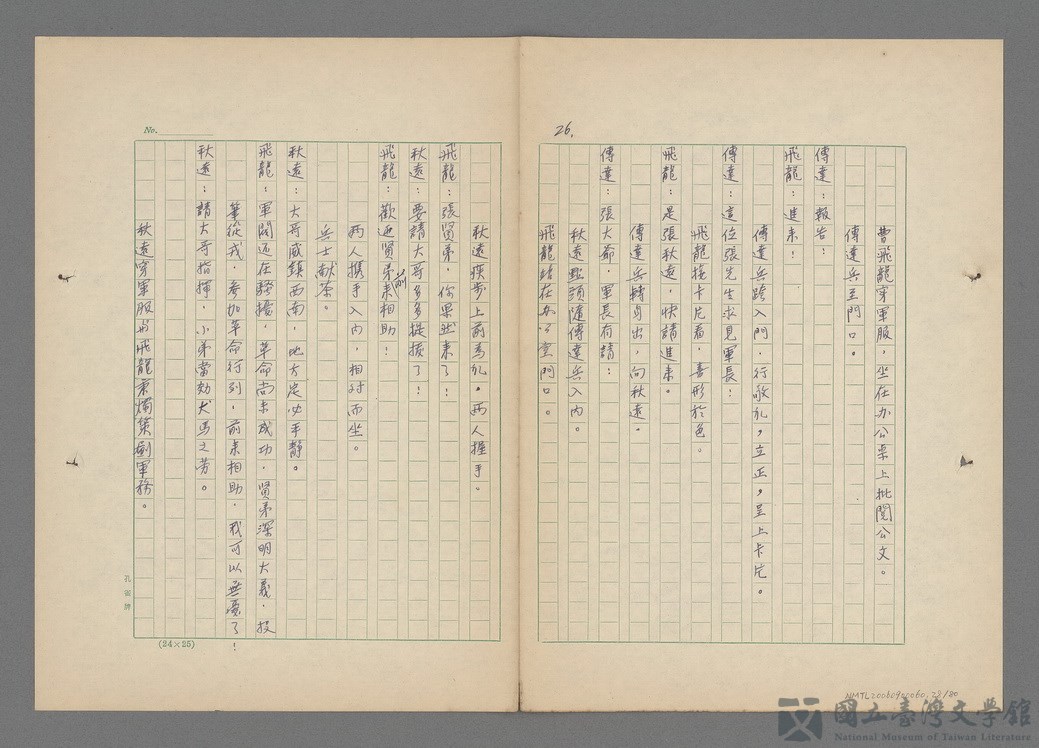 26.
曹飛龍穿軍服，坐在办公桌上批閱公文。
傳達兵至門口。
傳達：報告：
飛龍：進来！
傳達兵跨入門，行敬礼，立正，呈上卡片。
傳達：這位張先生求見軍長：
飛龍接卡片看，喜形於色。
飛龍：是張秋遠，快請進来。
傳達兵轉身出，向秋遠。
傳達：張大爺，軍長有請：
秋遠點頭隨傳達兵入內。
飛龍站在办公室門口。
No.
秋遠疾步上前為礼。两人握手。
飛龍：張賢弟，你果然来了：
秋遠：要請大哥多多提拔了！
飛龍：歡迎賢弟前来相助！
两人携手入内，相对而坐。
兵士献茶。
秋遠：大哥威鎮西南，地方定必平靜。
飛龍：軍閥还在騷擾，革命尚未成功，賢弟深明大義，投
筆從戎，参加革命行列，前来相助，我可以無憂了！
秋遠：請大哥指揮，小弟當効犬馬之劳。
秋遠穿軍服与飛龍秉燭策劃軍務。
孔雀牌
(24×25)
NMTL20060900060.28/80
國立臺灣文學館
National Museum of Taiwan Literature